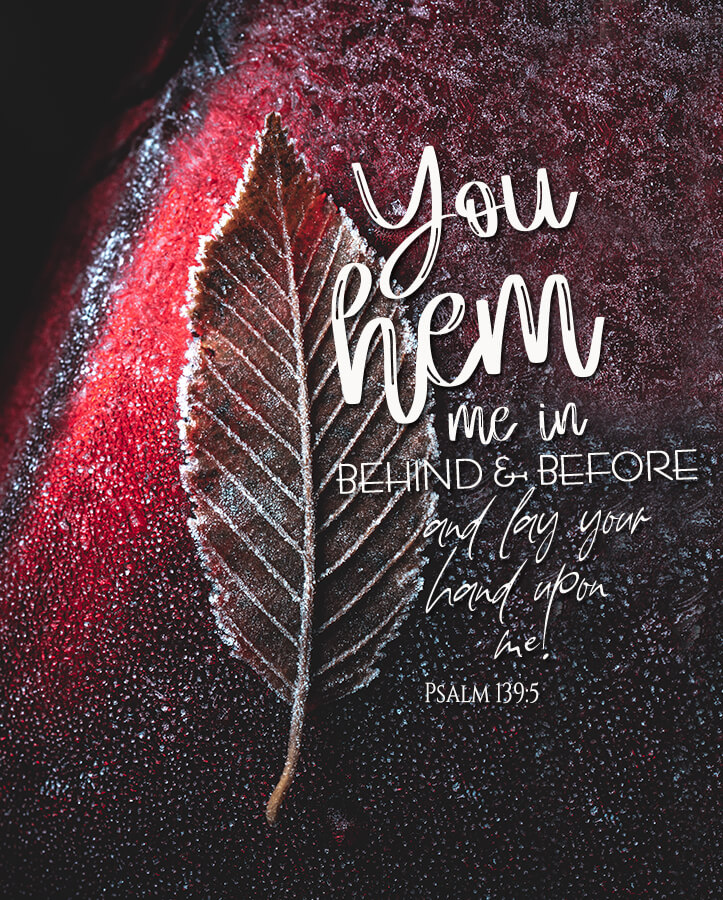 You
hem
me in
BEHIND & BEFORE
and lay your
hand upon
me!
PSALM 139:5